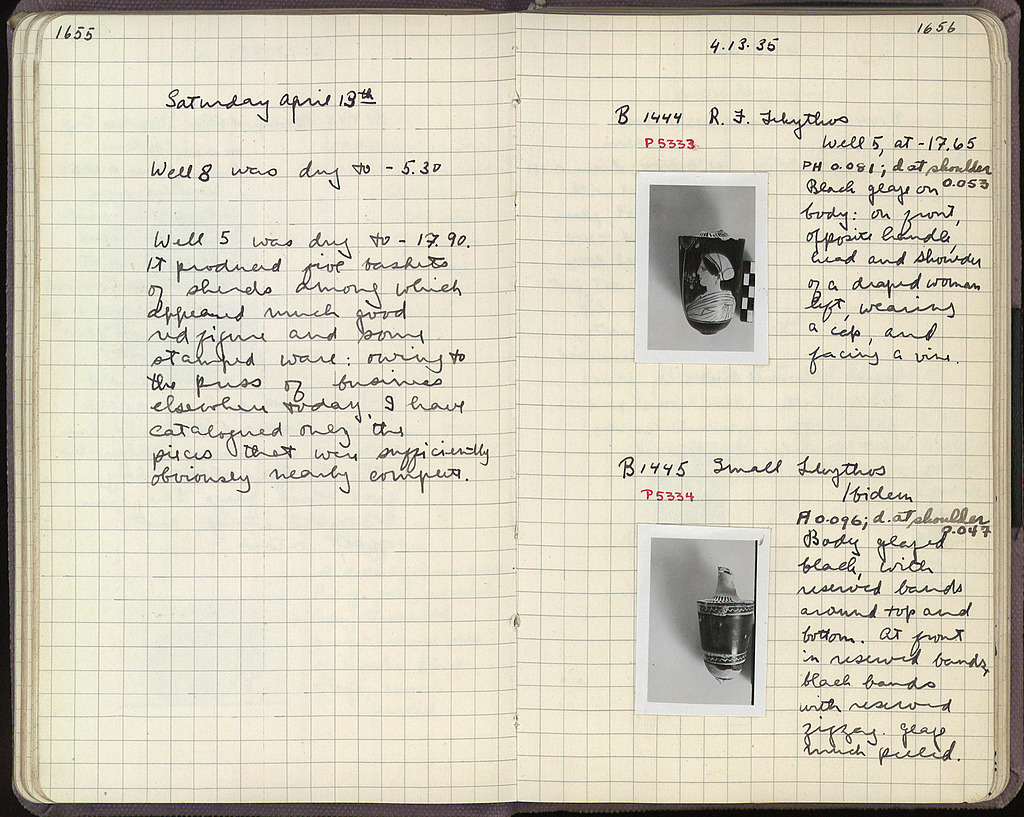 1655
Saturday April 13th
Well 8 was dug to - 5.30
Well 5 was dug to - 17.90.
It produced five baskets
of sherds among which
appeared much good
red figure and some
stamped ware: owing to
the press of business
elsewhere today, I have
catalogued only the
pieces that were sufficiently
obviously nearly complete.
1656
4.13.35
B 1444 R. F. Lekythos
P 5333
Well 5, at -17.65
PH 0.081; d at shoulder
0.053
Black glaze on
body: on front,
opposite handle,
head and shoulder
of a draped woman
left, wearing
a cap, and
facing a vine.
B 1445 Small Lekythos
P 5334
Ibidem
H 0.096; d. at shoulder
0.047
Body glazed
black, with
reserved bands
around top and
bottom. At front
in reserved bands,
black bands
with reserved
zigzag. Glaze
much peeled.